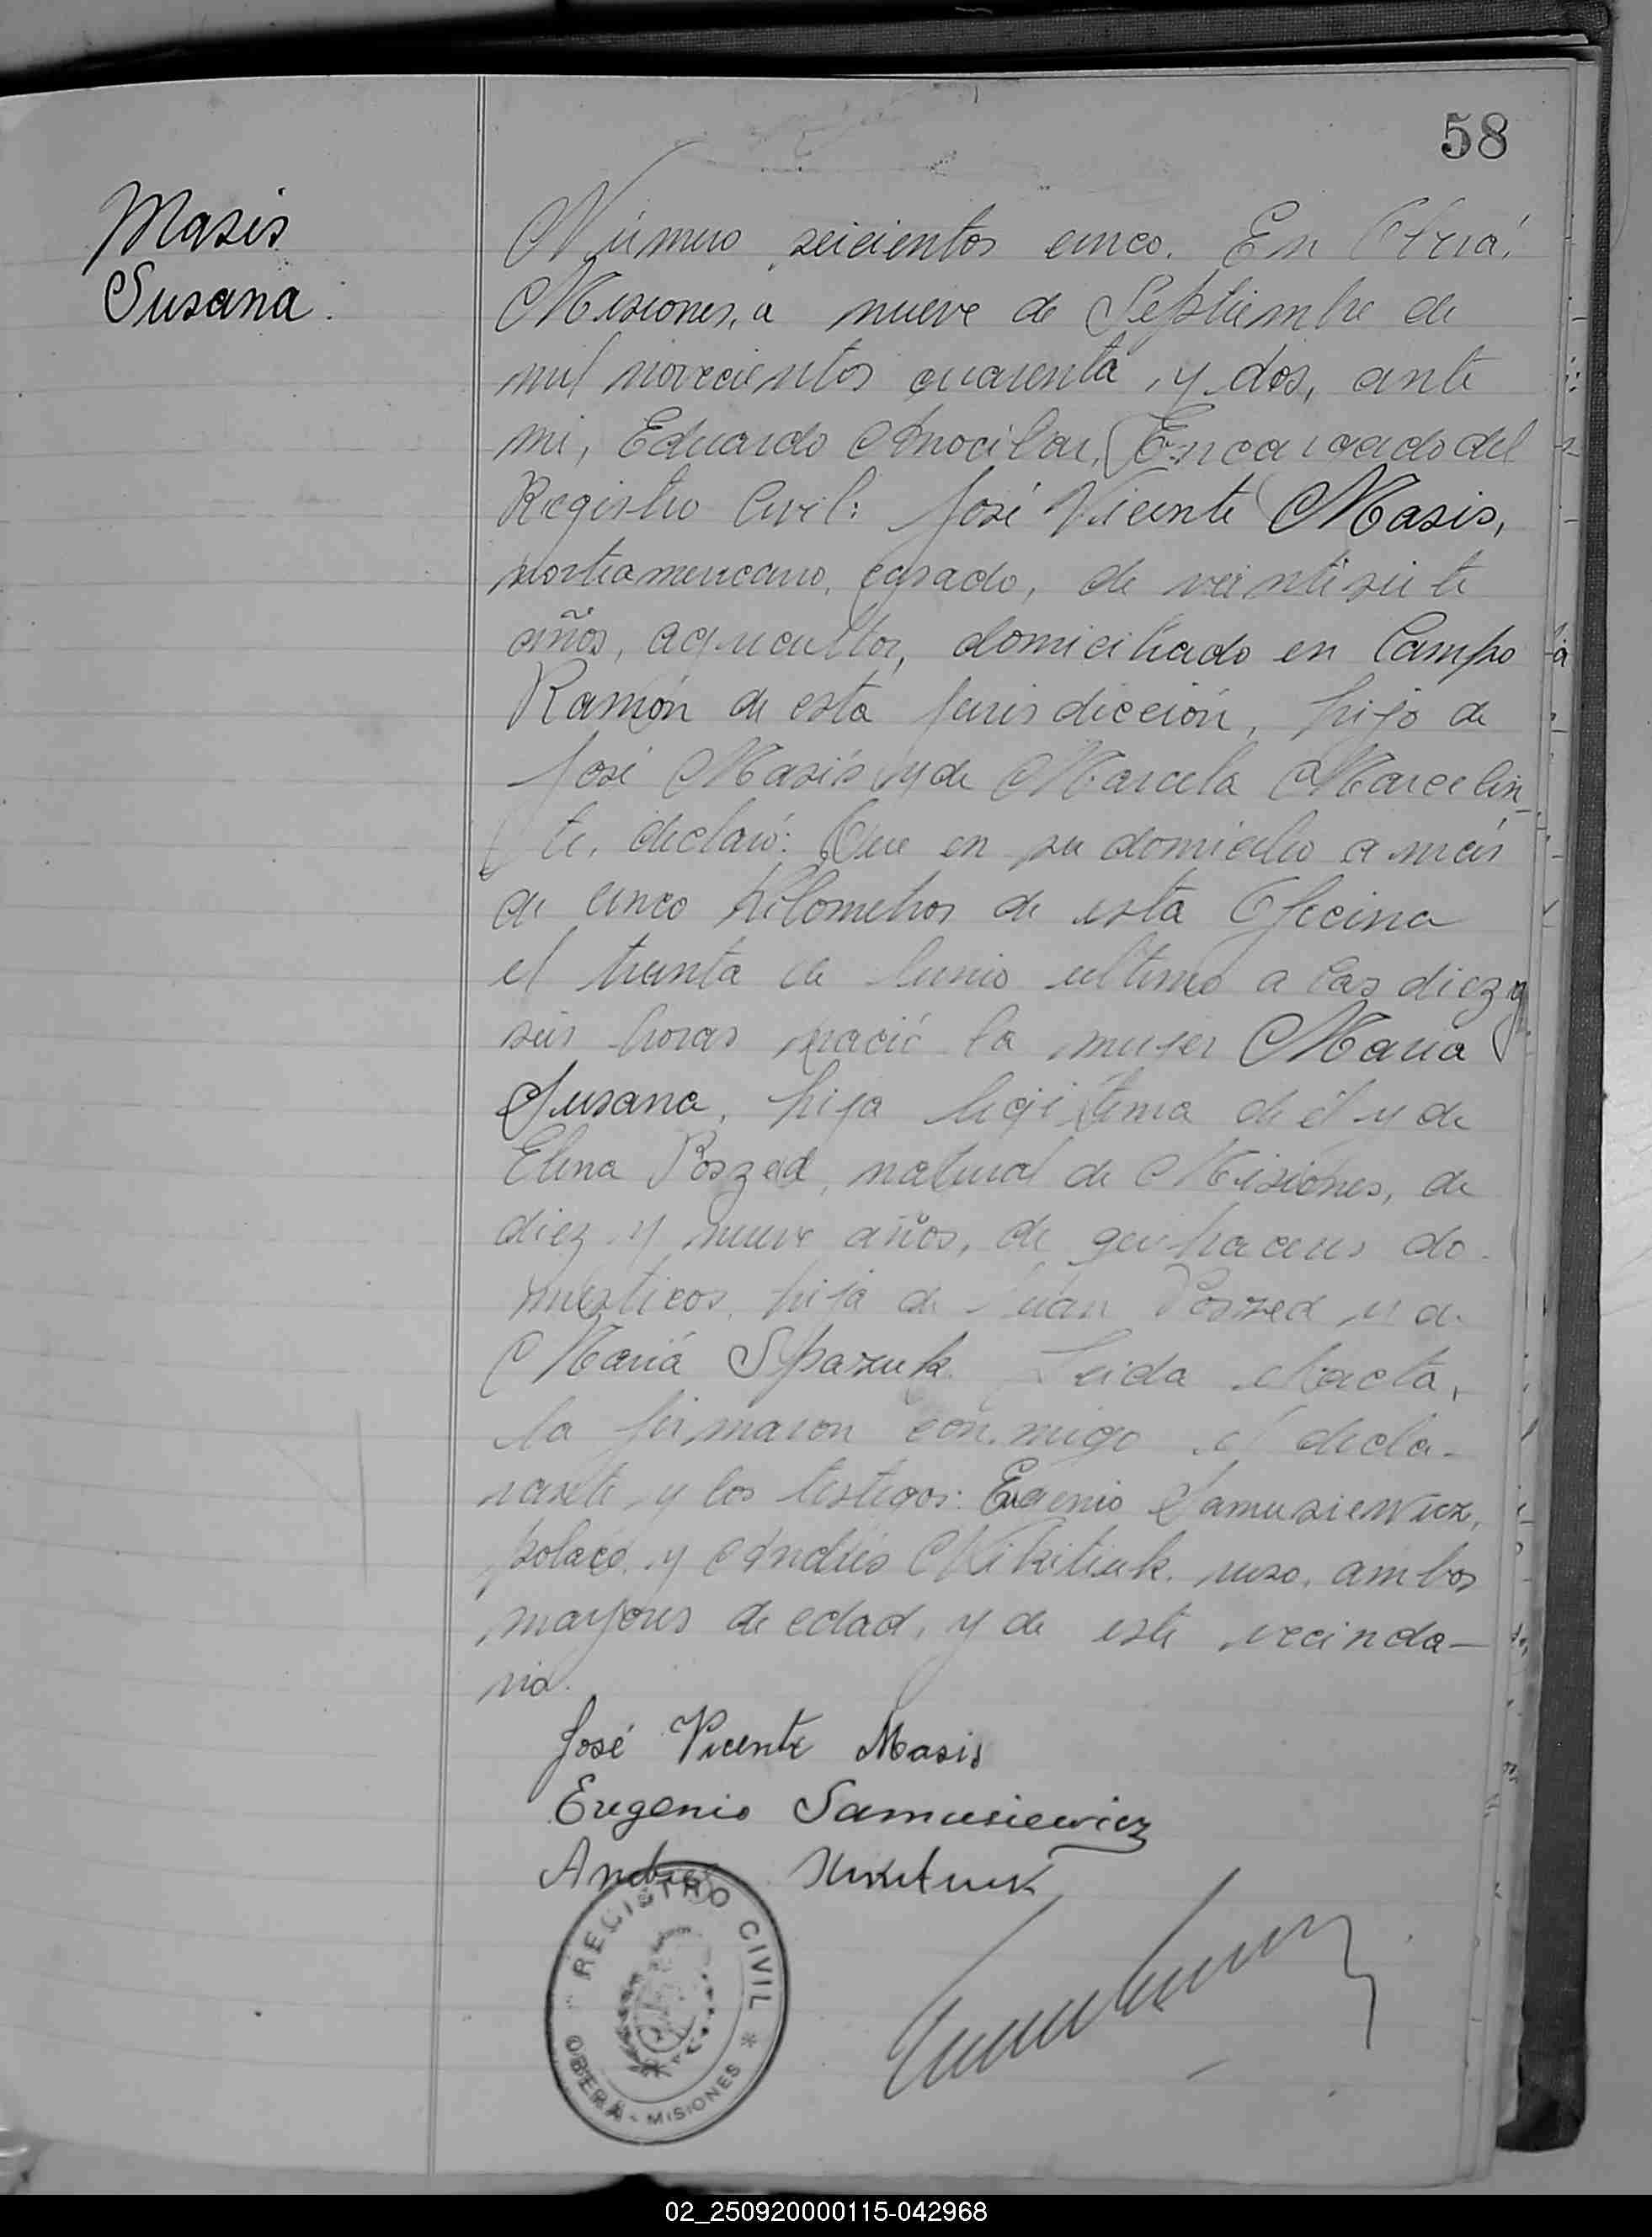 58
Masis
Susana.
Número seicientos cinco. En Oberá,
Misiones, a nueve de Septiembre de
mil novecientos cuarenta y dos, ante
mi, Eduardo Encargado del
Registro Civil: José Vicente Masis,
norteamericano, casado, de veintisiete
años, agricultor, domiciliado en Campo
Ramón de esta jurisdicción, hijo de
José Masis y de Marcela Marcelin
te, declaró: Que en su domicilio a más
de cinco kilometros de esta Oficina
el treinta de Junio ultimo a las diez y
seis horas nació la mujer María
Susana, hija legitima de él y de
Elena Poszed, natural de Misiones, de
diez y nueve años, de quehaceres do-
mesticos, hija de Juan Poszed y de
María Spazuk. Leida el acta,
la firmaron conmigo el decla-
rante y los testigos: Eugenio Samusiewicz,
polaco, y Andrés Nikitiuk, ruso, ambos
mayores de edad, y de este vecinda-
rio.
José Vicente Masis
Eugenio Samusiewicz
Andrés Nikitiuk
REGISTRO CIVIL *
OBERÁ - MISIONES
02_250920000115-042968